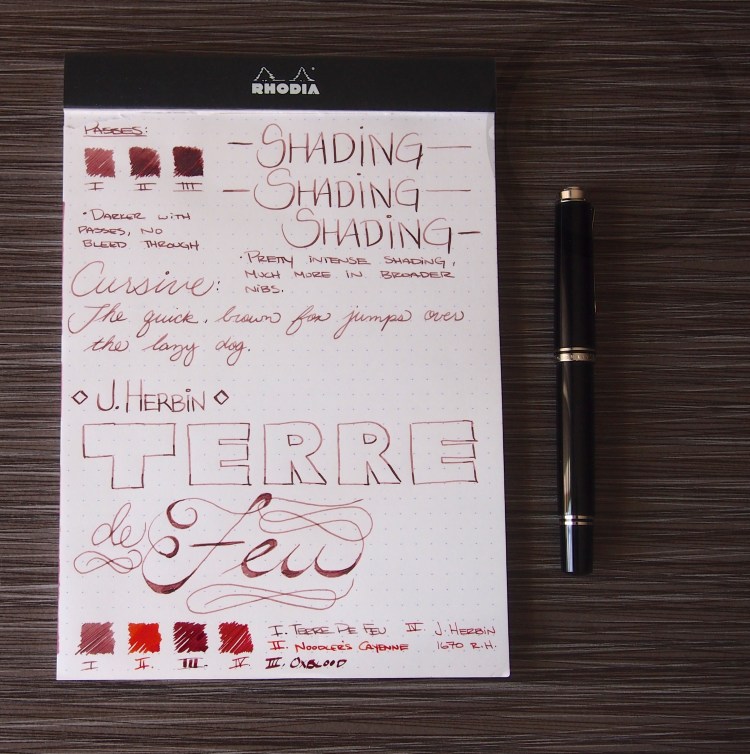 RHODIA
PASSES:
I II III
-SHADING-
-SHADING-
SHADING-
•DARKER WITH
PASSES, NO
BLEED THROUGH
•PRETTY INTENSE SHADING,
MUCH MORE IN BROADER
NIBS.
Cursive:
The quick, brown fox jumps over
the lazy dog.
◇ J. HERBIN ◇
TERRE
de Feu
I II. III. IV
I. TERRE DE FEU
II. NOODLER'S CAYENNE
III. OXBLOOD
IV J. HERBIN
1670 R.H.